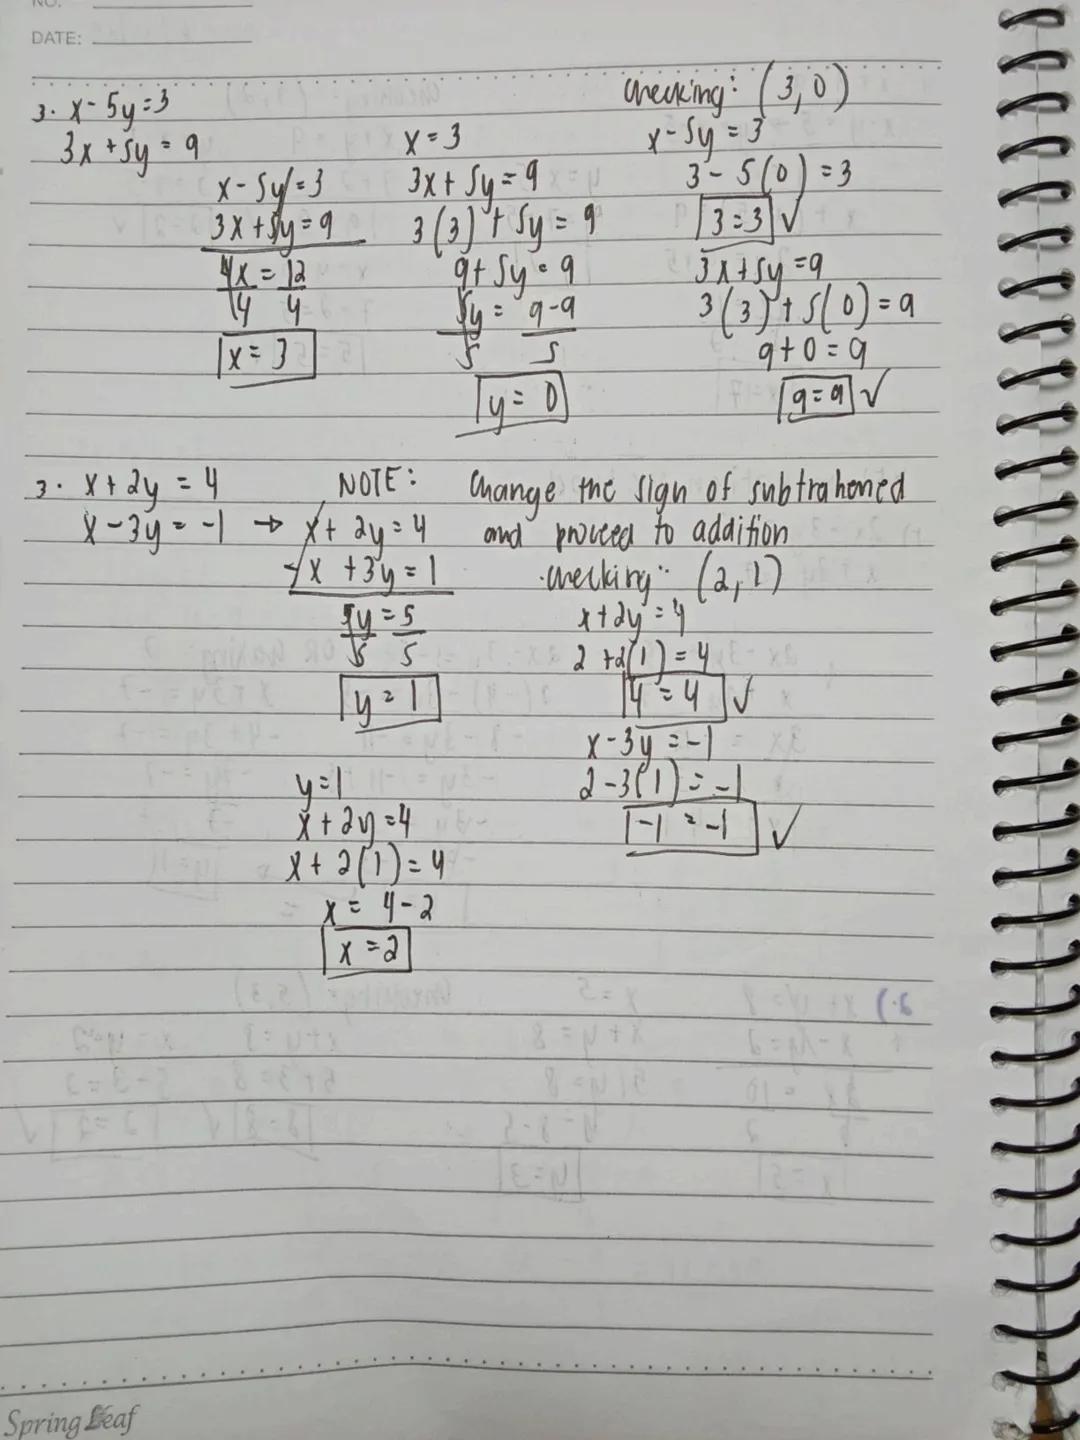 NO.
DATE:
3. x - 5y = 3
3x + 5y = 9
x - 5y = 3
3x + 5y = 9
4x = 12
4 4
x = 3
x = 3
3x + 5y = 9
3(3) + 5y = 9
9 + 5y = 9
5y = 9 - 9
5 5
y = 0
Checking: (3, 0)
x - 5y = 3
3 - 5(0) = 3
3 = 3 ✓
3x + 5y = 9
3(3) + 5(0) = 9
9 + 0 = 9
9 = 9 ✓
3. x + 2y = 4
x - 3y = -1 → x + 2y = 4
-x + 3y = 1
5y = 5
5 5
y = 1
y = 1
x + 2y = 4
x + 2(1) = 4
x = 4 - 2
x = 2
NOTE: Change the sign of subtrahened
and proceed to addition
Checking: (2, 1)
x + 2y = 4
2 + 2(1) = 4
4 = 4 ✓
x - 3y = -1
2 - 3(1) = -1
-1 = -1 ✓
Spring Leaf